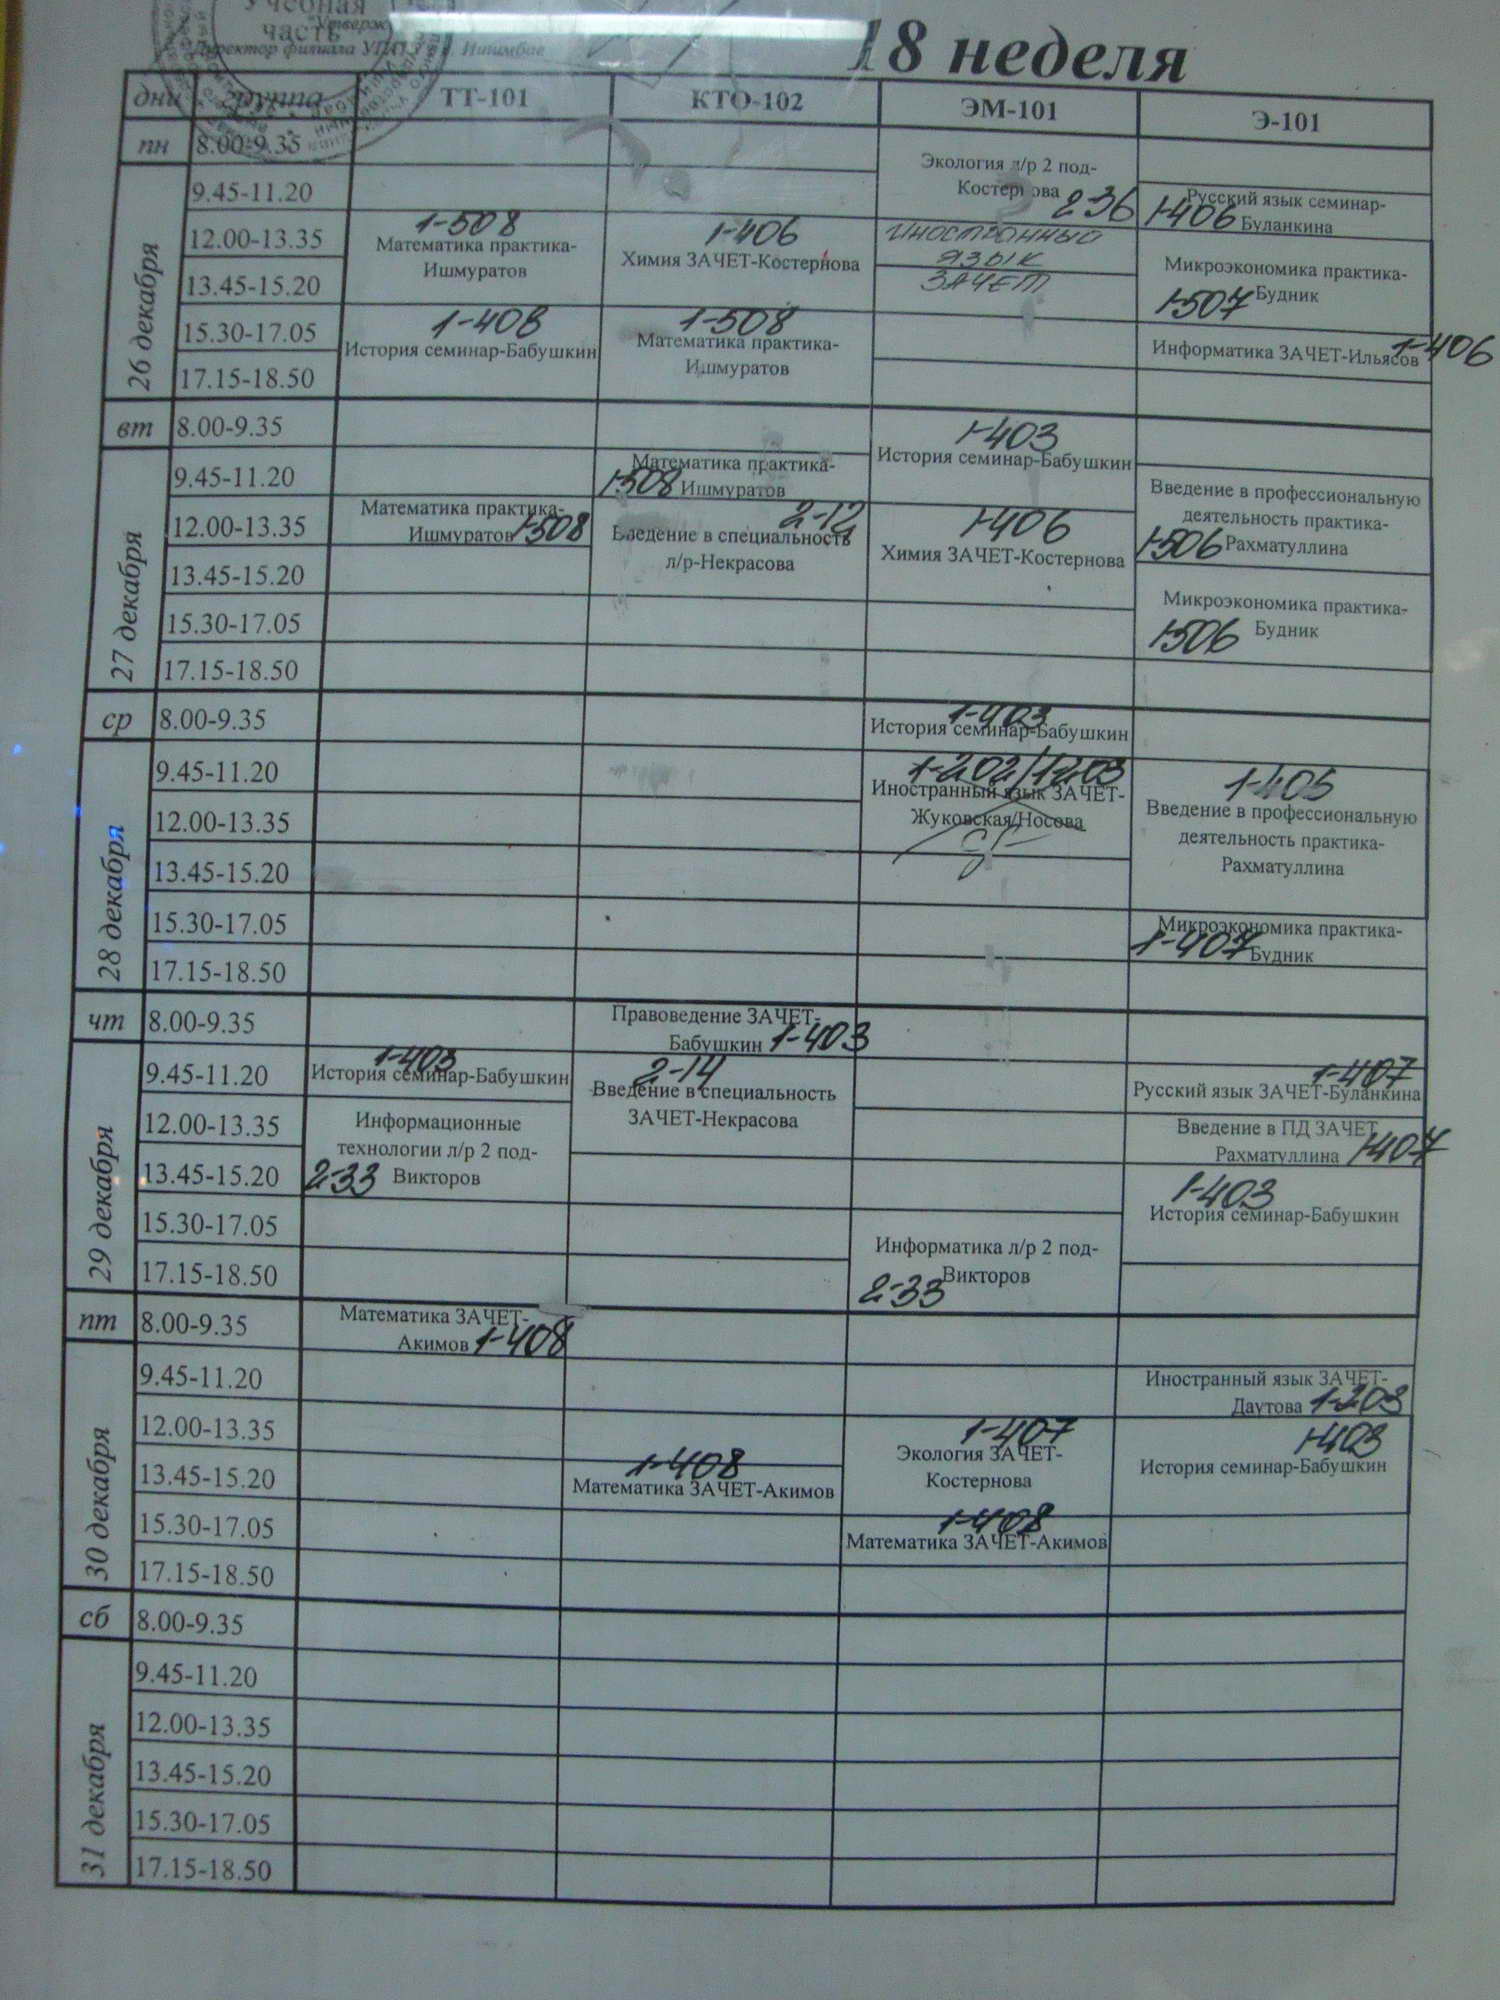 Учебная
часть
"Утверж
Директор филиала УГАТУ г. Ишимбае
18 неделя
дни группа ТТ-101 КТО-102 ЭМ-101 Э-101
пн 8.00-9.35
26 декабря
Экология л/р 2 под-
Костернова 236
9.45-11.20
Русский язык семинар-
1-406 Буланкина
12.00-13.35
1-508
Математика практика-
Ишмуратов
1-406
Химия ЗАЧЕТ-Костернова
Иностранный
язык
зачет
13.45-15.20
Микроэкономика практика-
1-507 Будник
15.30-17.05
1-408
История семинар-Бабушкин
1-508
Математика практика-
Ишмуратов
Информатика ЗАЧЕТ-Ильясов 1-406
17.15-18.50
вт 8.00-9.35
27 декабря
1-403
История семинар-Бабушкин
9.45-11.20
Математика практика-
1-508 Ишмуратов
Введение в профессиональную
деятельность практика-
1-506 Рахматуллина
12.00-13.35
Математика практика-
Ишмуратов 1-508
2-12
Введение в специальность
л/р-Некрасова
1-406
Химия ЗАЧЕТ-Костернова
13.45-15.20
Микроэкономика практика-
1-506 Будник
15.30-17.05
17.15-18.50
ср 8.00-9.35
28 декабря
1-403
История семинар-Бабушкин
9.45-11.20
1-202/1-203
Иностранный язык ЗАЧЕТ-
Жуковская/Носова
1-405
Введение в профессиональную
деятельность практика-
Рахматуллина
12.00-13.35
13.45-15.20
15.30-17.05
Микроэкономика практика-
1-407 Будник
17.15-18.50
чт 8.00-9.35
29 декабря
Правоведение ЗАЧЕТ-
Бабушкин 1-403
9.45-11.20
1-403
История семинар-Бабушкин
2-14
Введение в специальность
ЗАЧЕТ-Некрасова
1-407
Русский язык ЗАЧЕТ-Буланкина
12.00-13.35
Информационные
технологии л/р 2 под-
2-33 Викторов
Введение в ПД ЗАЧЕТ
Рахматуллина 1-407
13.45-15.20
1-403
История семинар-Бабушкин
15.30-17.05
Информатика л/р 2 под-
Викторов
2-33
17.15-18.50
пт 8.00-9.35
30 декабря
Математика ЗАЧЕТ-
Акимов 1-408
9.45-11.20
Иностранный язык ЗАЧЕТ-
Даутова 1-203
12.00-13.35
1-407
Экология ЗАЧЕТ-
Костернова
1-403
История семинар-Бабушкин
13.45-15.20
1-408
Математика ЗАЧЕТ-Акимов
15.30-17.05
1-408
Математика ЗАЧЕТ-Акимов
17.15-18.50
сб 8.00-9.35
31 декабря
9.45-11.20
12.00-13.35
13.45-15.20
15.30-17.05
17.15-18.50